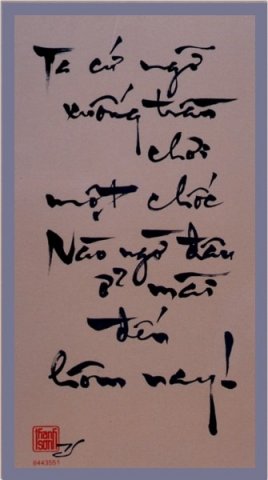 Ta cứ ngỡ
xuống trần
chơi
một chốc
Nào ngờ đâu
ở mãi
đến
hôm nay!
thanh
sơn
6443551